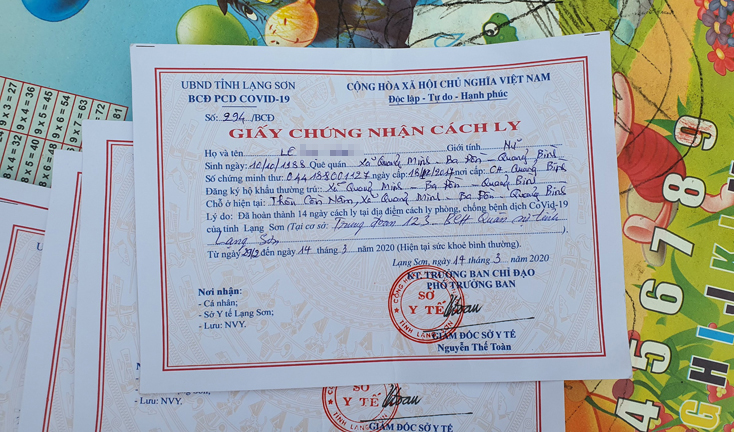 UBND TỈNH LẠNG SƠN
BCĐ PCD COVID-19
CỘNG HÒA XÃ HỘI CHỦ NGHĨA VIỆT NAM
Độc lập - Tự do - Hạnh phúc
Số: 294 /BCĐ
GIẤY CHỨNG NHẬN CÁCH LY
Họ và tên LÊ Giới tính Nữ
Sinh ngày: 10/10/1988 Quê quán Xã Quảng Minh - Ba Đồn - Quảng Bình
Số chứng minh thư: 044188001127 ngày cấp: nơi cấp: CA. Quảng Bình
Đăng ký hộ khẩu thường trú: Xã Quảng Minh - Ba Đồn - Quảng Bình
Chỗ ở hiện tại: Thôn Cồn Nâm, Xã Quảng Minh - Ba Đồn - Quảng Bình
Lý do: Đã hoàn thành 14 ngày cách ly tại địa điểm cách ly phòng, chống bệnh dịch CoVid-19
của tỉnh Lạng Sơn (Tại cơ sở: Trung đoàn 123. BCH Quân sự tỉnh
Lạng Sơn
Từ ngày 29/2 đến ngày 14 tháng 3 năm 2020 (Hiện tại sức khoẻ bình thường).
Lạng Sơn, ngày 14 tháng 3 năm 2020
KT. TRƯỞNG BAN CHỈ ĐẠO
PHÓ TRƯỞNG BAN
Nơi nhận:
- Cá nhân;
- Sở Y tế Lạng Sơn;
- Lưu: NVY.
SỞ
Y TẾ
TỈNH LẠNG SƠN
GIÁM ĐỐC SỞ Y TẾ
Nguyễn Thế Toàn
- Lưu: NVY.
SỞ
Y TẾ
9 x 3 = 27
9 x 4 = 36
9 x 5 = 45
9 x 6 = 54
4 5 6 7 8 9
G H I J